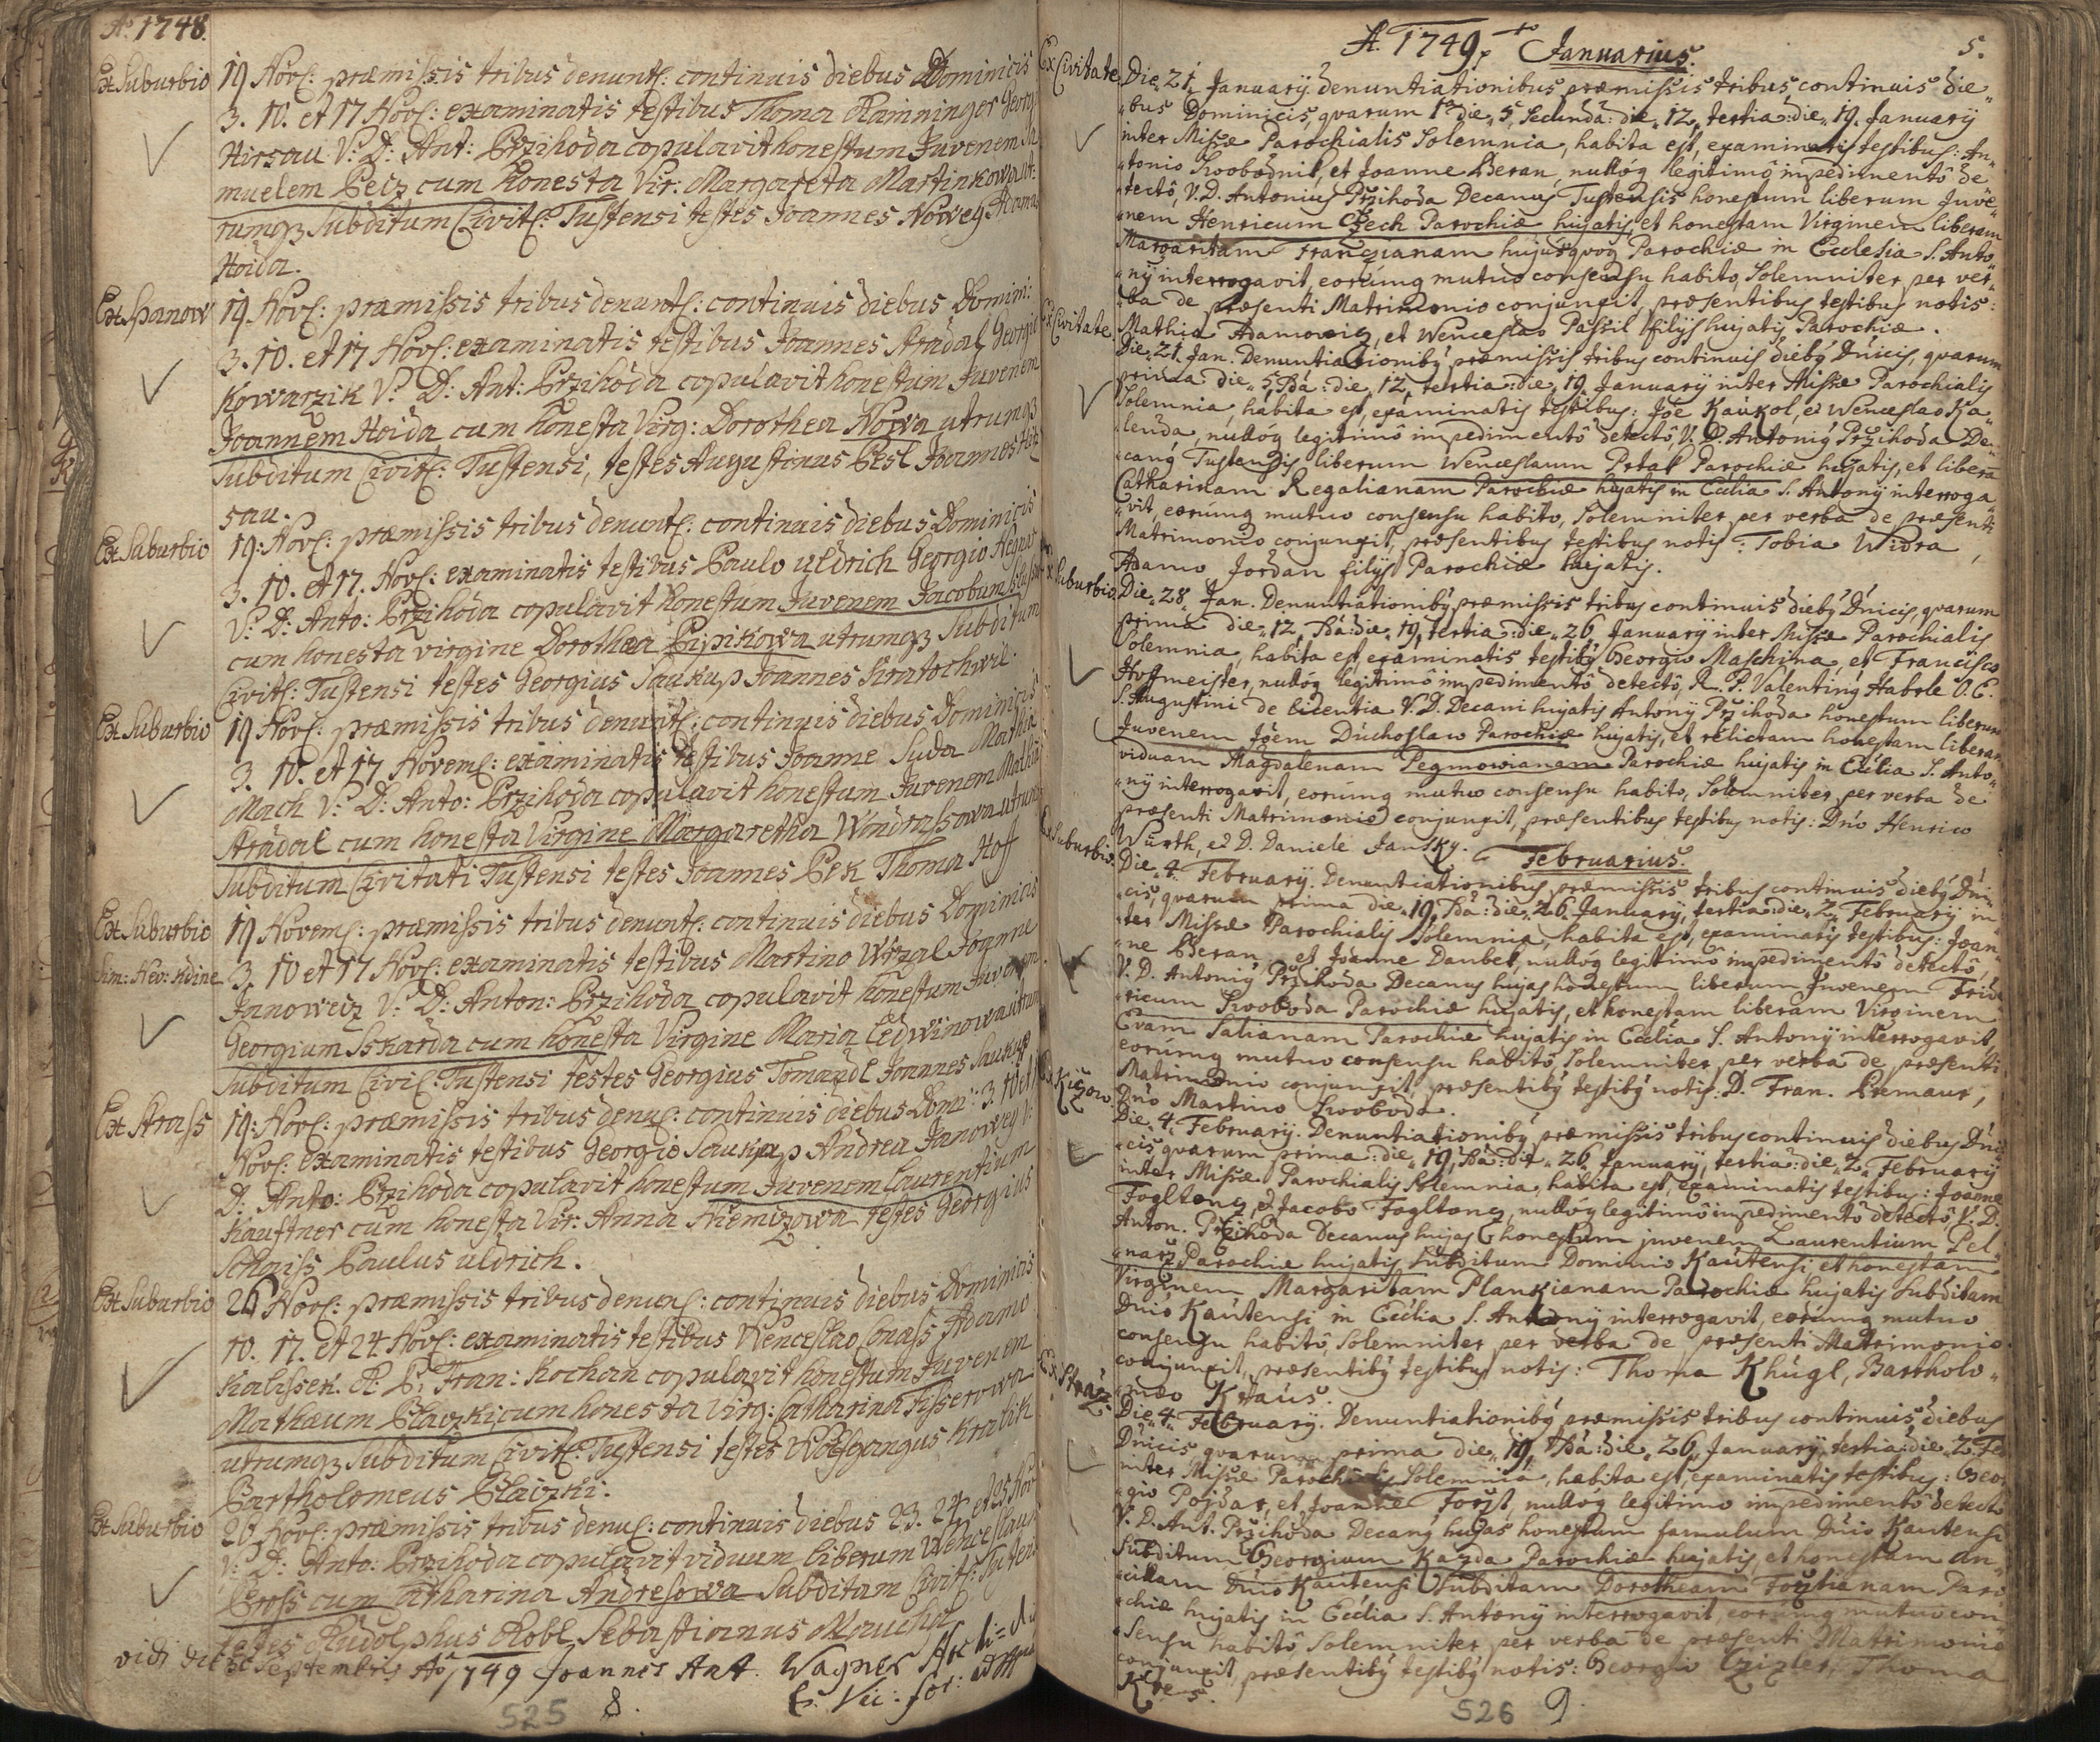 Aº 1748.
Ex Suburbio
19 Novē: præmissis tribus denunt: continuis diebus Dominicis
3. 10. et 17 Novē: examinatis testibus Thoma Raimninger Georg
Hirsau V: D: Ant: Przihoda copulavit honestum Juvenem Sa
muelem Peiz cum honesta Vir: Margareta Martinkowa ut:
rumqz Subditum Civitē: Tustensi testes Joannes Noweg Thoma
Hoida.
Ex Spanow
19 Novē: præmissis tribus denunt: continuis diebus Domin:
3. 10. et 17 Novē: examinatis testibus Joannes Stradal Georgi
Kowarzik V: D: Ant: Przihoda copulavit honestum Juvenem
Joannem Hoida cum honesta Virg: Dorothea Nowa utrumqz
Subditum Civitē: Tustensi, testes Augustinus Pesl Joannes Hir
sau.
Ex Suburbio
19: Novē: præmissis tribus denunt: continuis diebus Dominicis
3. 10. et 17. Novē: examinatis testibus Paulo Uldrich Georgio Heger
V: D: Anto: Przihoda copulavit honestum Juvenem Jacobum
cum honesta virgine Dorothea Pipikowa utrumqz Subditum
Civitē: Tustensi testes Georgius Saukup Joannes Kratochwil.
Ex Suburbio
19 Novē: præmissis tribus denunt: continuis diebus Dominicis
3. 10. et 17 Novemē: examinatis testibus Joanne Suda Mathia
Mach V: D: Anto: Przihoda copulavit honestum Juvenem Mathia
Stradal cum honesta Virgine Margaretha Wondrassowa utrum
Subditum Civitati Tustensi testes Joannes Pek Thoma Hoff
Ex Suburbio
19 Novemē: præmissis tribus denunt: continuis diebus Dominicis
3. 10 et 17 Novē: examinatis testibus Martino Wrzal Joanne
Janoweiz V: D: Anton: Przihoda copulavit honestum Juvenem
Georgium Sskarda cum honesta Virgine Maria Ledwinowa utrum
Subditum Civiē: Tustensi testes Georgius Tomandl Joannes Saukup
Ex Strass
19: Novē: præmissis tribus denuē: continuis diebus Dom: 3. 10 et 17
Novē: examinatis testibus Georgio Saukup Andrea Janoweg V:
D: Anto: Przihoda copulavit honestum Juvenem Laurentium
Kauftner cum honesta Vir: Anna Niemizowa testes Georgius
Schaiss Paulus Uldrich.
Ex Suburbio
26 Novē: præmissis tribus denunē: continuis diebus Dominicis
10. 17. et 24 Novē: examinatis testibus Wenceslao Conass Adamo
Kalissek. R: P: Fran: Kochan copulavit honestum Juvenem
Mathæum Plavzki cum honesta Virg: Catharina Fisserowa
utrumqz Subditum Civitē: Tustensi testes Wolfgangus Kralik
Bartholomeus Plaizki.
Ex Suburbio
26 Novē: præmissis tribus denuē: continuis diebus 23. 24 et 25 Nov
V: D: Anto: Przihoda copulavit viduum liberum Wenceslaum
Pross cum Catharina Andresowa Subditam Civitē: Tusten
testes Rudolphus Robl Sebastianus Mauchul
vidi die 30 Septembris Aº 1749 Joannes Ant. Wagner
525 8.
A. 1749. to Januarius. 5.
Ex Civitate
Die 21. January denuntiationibus præmissis tribus continuis die„
„bus Dominicis, quarum 1ª die„ 5, Secunda: die„ 12, tertia: die„ 19. January
inter Missæ Parochialis Solemnia, habita est, examinatis testibus: An„
„tonio Swobodnik, et Joanne Beran, nullóq legitimô impedimentô de
„tectô, V. D. Antonius Pržihoda Decanus Tustensis honestum liberum Juve„
„nem Henricum Czech Parochiæ hujatis, et honestam Virginem liberam
Margaritam Franczianam hujus quoq Parochiæ in Ecclesia S. Anto„
„ny interrogavit, eorúmq mutuo consensu habito, Solemniter per ver„
„ba de præsenti Matrimonio conjunxit, præsentibus testibus notis:
Mathia Adamowicz, et Wenceslao Passil filys hujatis Parochiæ.
Ex Civitate.
Die„ 21. Jan. Denuntiationibý præmissis tribus continuis diebý Dnicis, quarum
prima die„ 5, 2dâ: die„ 12, tertia: die„ 19. January inter Missæ Parochialis
Solemnia, habita est, examinatis testibus: Jóe Kaúkol, et Wenceslao Ka„
„lenda, nullóq legitimô impedimentô detectô, V. D. Antoniý Pržihoda De„
„canq Tustensis liberum Wenceslaum Prtak Parochiæ hujatis, et liberā
Catharinam Regalianam Parochiæ hujatis in Ecclia S. Antony interroga„
„vit, eorúmq mutuo consensu habito, Solemniter per verba de præsenti
Matrimonio conjunxit, præsentibus testibus notis: Tobia Widra,
Adamo Jordan filys Parochiæ hujatis.
Ex Suburbio.
Die„ 28„ Jan. Denuntiationibý præmissis tribus continuis diebý Dnicis, quarum
prima die„ 12, 2dâ: die„ 19, tertia: die„ 26 January inter Missæ Parochialis
Solemnia, habita est, examinatis testibý Georgio Maschina, et Francisco
Hoffmeister, nullóq legitimô impedimentô detectô, R. P. Valentinq Haberle O. E.
S. Augustini de licentia V. D. Decani hujatis Antony Pržihoda honestum liberum
Juvenem Jóem Duchoslaw Parochiæ hujatis, et relictam honestam liberam
viduam Magdalenam Pegmowianam Parochiæ hujatis in Ecclia S. Anto„
„ny interrogavit, eorúmq mutuo consensu habito, Solemniter per verba de
præsenti Matrimonio conjunxit, præsentibus testibus notis: Dno Henrico
Wúrth, et D. Daniele Jansky.
Februarius.
Ex Suburbio.
Die„ 4. February. Denuntiationibus præmissis tribus continuis diebý Dni„
„cis, quarum prima die„ 19, 2dâ: die„ 26. January, tertia: die„ 2„ February in„
„ter Missæ Parochialis Solemnia, habita est, examinatis testibus: Joan„
„ne Beran, et Joanne Daubek, nullóq legitimô impedimentô detectô,
V. D. Antoniý Pržihoda Decanus hujas honestum liberum Juvenem Fride„
„ricum Swoboda Parochiæ hujatis, et honestam liberam Virginem
Evam Salianam Parochiæ hujatis in Ecclia S. Antony interrogavit,
eorúmq mutuo consensu habitô, Solemniter per verba de præsenti
Matrimonio conjunxit, præsentibý testibý notis: D. Fran. Premaur,
Dno Martino Swoboda.
Ex Kižow.
Die„ 4. February. Denuntiationibý præmissis tribus continuis diebus Dni„
„cis, quarum prima: die„ 19, 2dâ: die„ 26 January, tertia: die„ 2„ February
inter Missæ Parochialis Solemnia, habita est, examinatis testibus: Joanne
Fogltanz, et Jacobo Fogltanz, nullóq legitimô impedimentô detectô, V. D.
Anton. Pržihoda Decanus hujas honestum juvenem Laurentium Pel„
„narz Parochiæ hujatis Subditum Dominio Kaútensi et honestam
Virginem Margaritam Plankianam Parochiæ hujatis Subditam
Dnio Kaútensi in Ecclia S. Antony interrogavit, eorúmq mutuo
consensu habitô, Solemniter per verba de præsenti Matrimonio
conjunxit, præsentibý testibus notis: Thoma Khúgl, Bartholo„
„mæo Kraús.
Ex Stráž.
Die„ 4. February. Denuntiationibý præmissis tribus continuis diebus
Dnicis quarum prima die„ 19, 2dâ: die„ 26, January, tertia: die„ 2. Fe
inter Missæ Parochialis Solemnia, habita est, examinatis testibus: Geor
„gio Pojdar, et Joanne Foržt, nullóq legitimo impedimentô detectô
V. D. Ant. Pržihoda Decanq hujas honestum famulum Dnio Kautensi
Subditum Georgium Kazda Parochiæ hujatis, et honestam an„
„cillam Dnio Kautensi Subditam Dorotheam Foržtianam Paro
„chiæ hujatis in Ecclia S. Antony interrogavit, eorúmq mutuo con„
„sensu habitô Solemniter per verba de præsenti Matrimonio
conjunxit, præsentibý testibý notis: Georgio Czizler, Thoma
526 9.